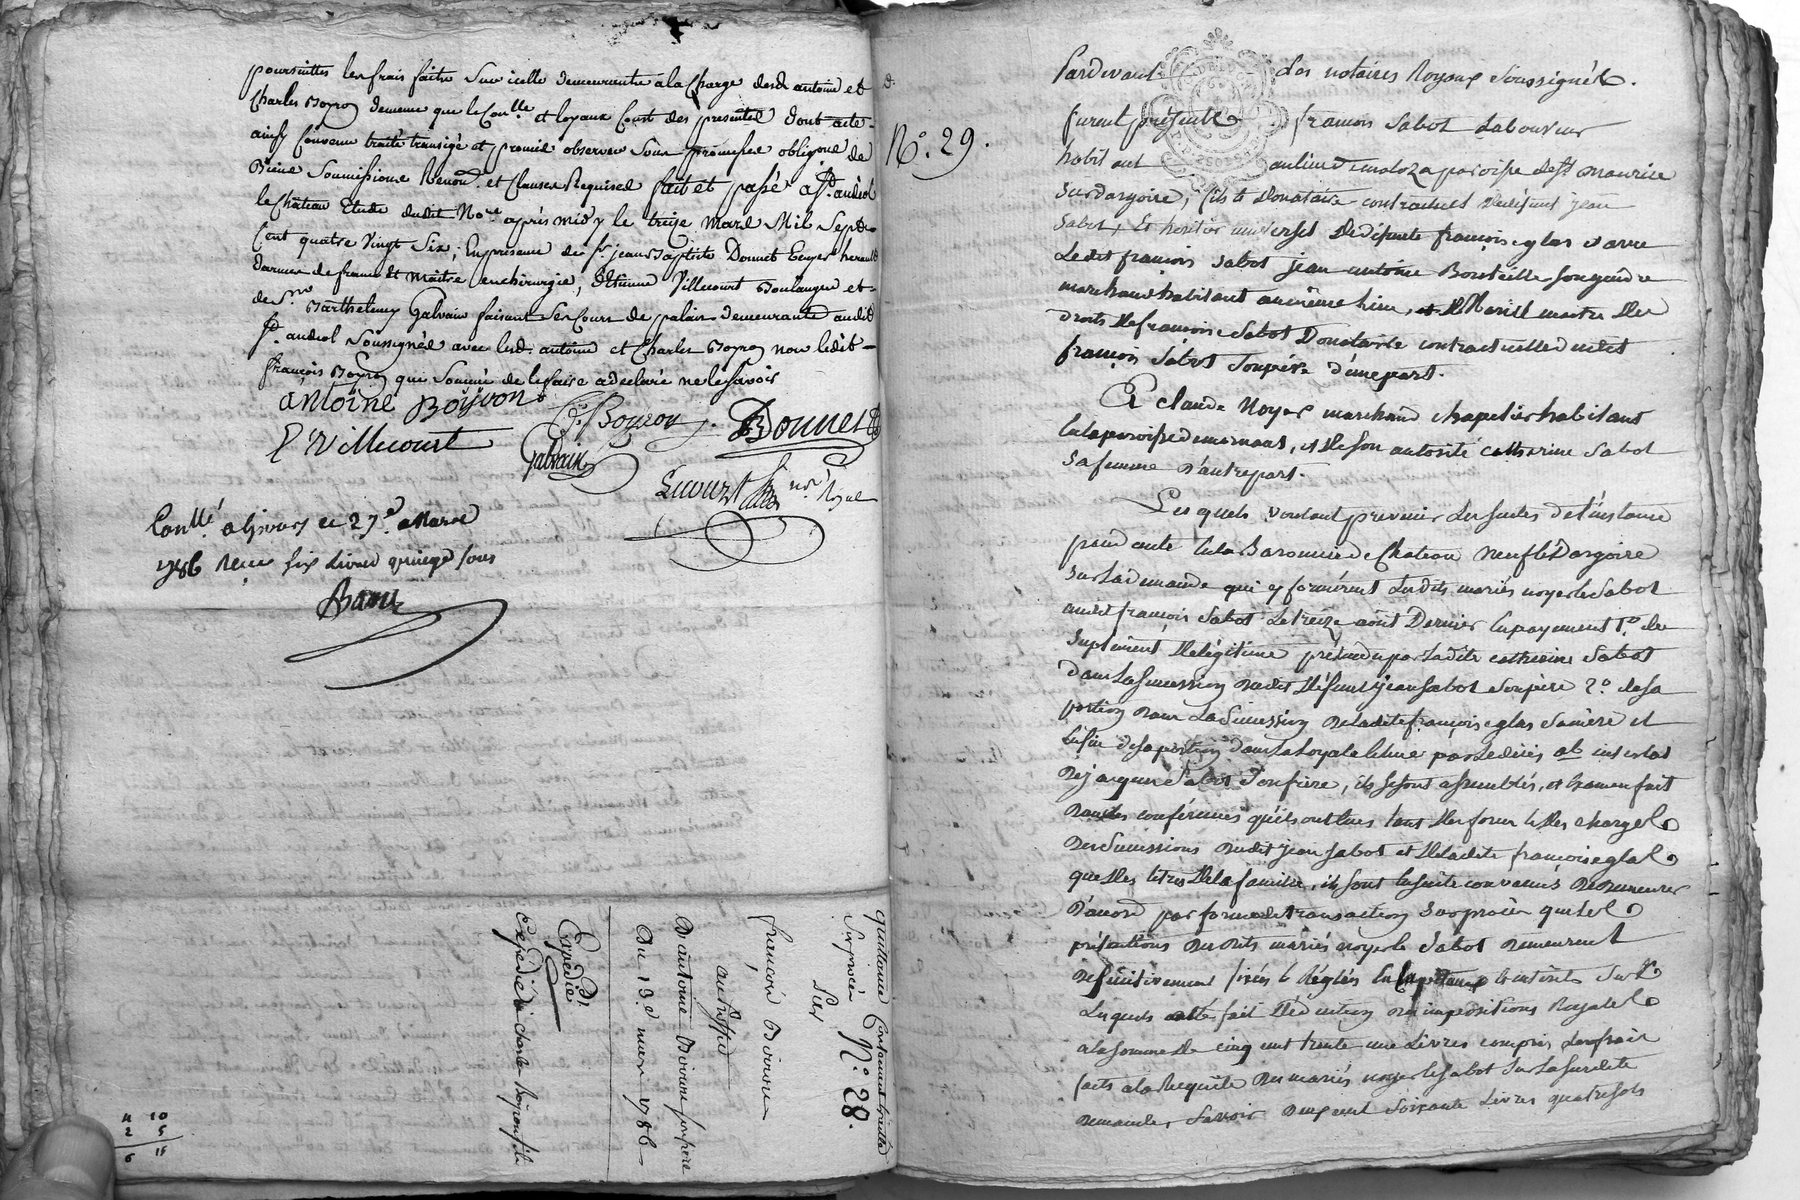 poursuittes les frais faits sur icelle demeurants a la charge desd. antoine et
Charles Boyron demême que le Con.lle et loyaux Cout des présentes dont acte
ainsy Convenu traité transigé et promis observer sous promesse obligons de
Biens Soumissions Renon. et Clauses Requises fait et passé a St. andéol
le Château Etude dudit No.re après midy le treize Mars Mil Sept
Cent quatre Vingt Six ; En présence de Sr. jean Baptiste Donnet
darmes de france et Maitre en chirurgie, d'Etienne Villecourt Boulanger et
de Sr. Barthelemy Galvain faisant ses Cours de palais demeurants audit
St. andeol Soussignés avec lesd. antoine et Charles Boyron non ledit
françois Boyron qui Sommé de le faire a déclaré ne le Savoir
antoine Boyron
C. Boyron
Donnet
E. Villecourt
Galvain
nore. Royal
Conllé a Givors le 27e. Mars
1786 Reçu six Livres quinze sous
quittance
Sur procès N°. 28.
Par
françois Boiron
au profit
D'antoine Boiron son frère
Du 13e. mars 1786
Expédié
Expédié à charles Boyron fils
11 10
2 5
6 15
N°. 29.
Pardevant Les notaires Royaux Soussignés.
furent présents françois Sabot Laboureur
habitant au lieu de paroisse de St. Maurice
Sur dargoire, fils et Donataire contractuel de défunt jean
Sabot, Et héritier universel de défunte françoise glas
Ledit françois Sabot jean antoine Bouteille Son gendre
marchand habitant au même lieu, et Maitre des
Droits de françoise Sabot Donataire contractuelle dudit
françois Sabot Son père d'une part.
Et claude Noyer marchand chapelier habitant
En la paroisse de mornant, et de Son autorité catherine Sabot
Sa femme D'autre part.
Lesquels voulant prevenir Les Suites de l'instance
pendante En la Baronnie de Chateau neuf et Dargoire
Sur La demande qui y formérent Lesdits mariés noyer et Sabot
audit françois Sabot Le treize aoust Dernier En payement 1°. de
Suplément de légitime prétendu par Ladite catherine Sabot
Dans La Succession dudit défunt jean Sabot Son père 2°. de Sa
portion dans La Succession de Ladite françoise glas Sa mère et
Enfin de Sa portion dans La Loyale Echue par Le décès ab intestat
de jacques Sabot Son frère, ils Se Sont assemblés, et Examen fait
dans les conférences qu'ils ont Eues tant des forces Et des charges
des Successions dudit jean Sabot et de Ladite françoise glas
que des titres de la famille, ils Sont Ensuite convenus de demeurer
D'accord par forme de transaction Sur procès que Les
prétentions desdits mariés noyer et Sabot demeurent
définitivement fixés Et Réglés En Capitaux Et intérêts Sur
Lesquels a été fait déduction des impositions Royales
a la Somme de cinq cent trente une Livres compris Les frais
faits a la Requête des mariés noyer et Sabot Sur La Susdite
demande, Savoir deux cent Soixante Livres quatre Sols